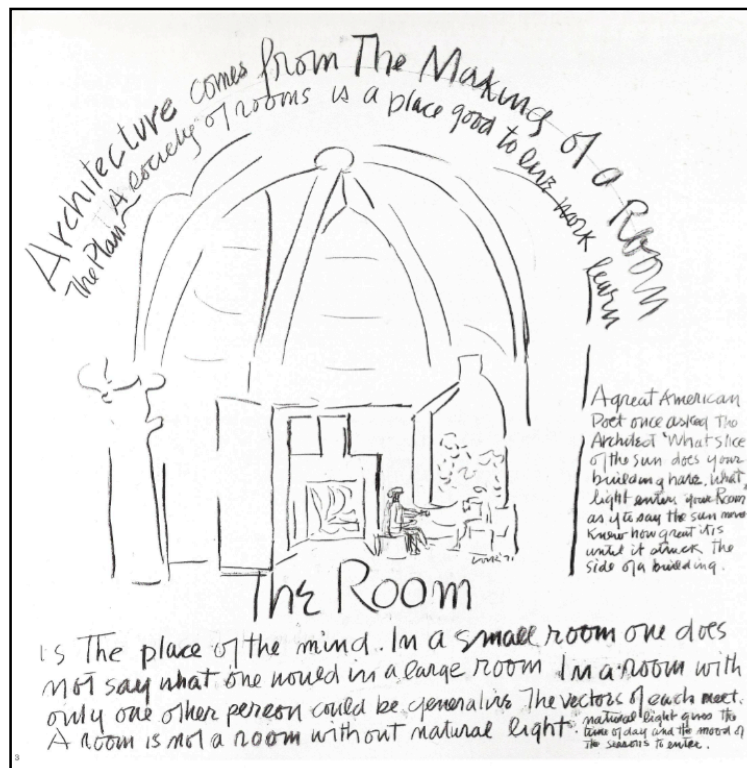 Architecture comes from The Making of a Room
The Plan A society of rooms is a place good to live work learn
A great American
Poet once asked the
Architect 'What slice
of the sun does your
building have. What
light enters your Room
as if to say the sun never
knew how great it is
until it struck the
side of a building.
The Room
is the place of the mind. In a small room one does
not say what one would in a large room In a room with
only one other person could be generative The vectors of each meet.
A room is not a room without natural light
natural light gives the
time of day and the mood of
the seasons to enter.
3